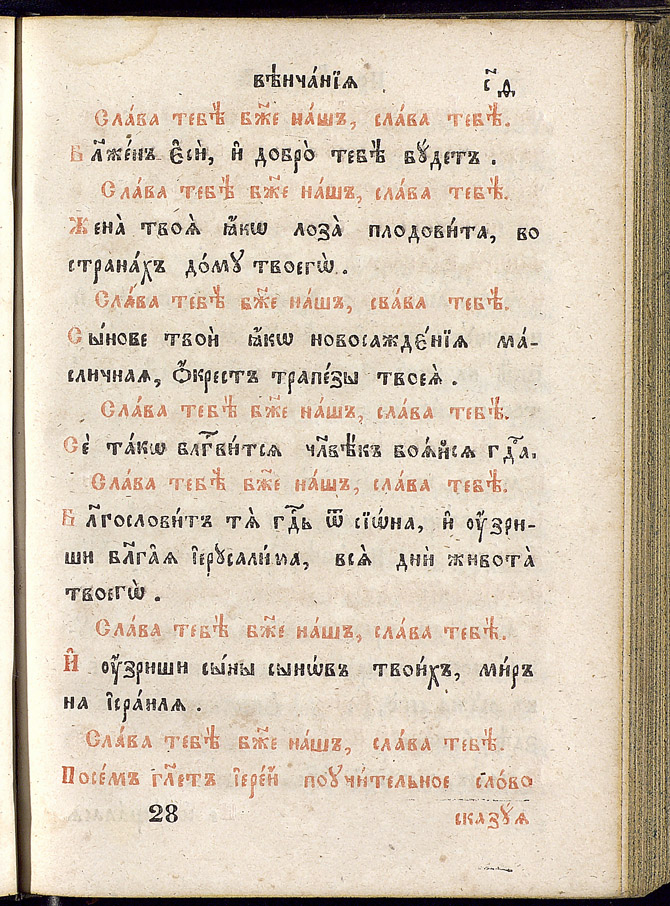 вѣнча́нїѧ с҃д
Сла́ва тебѣ̀ бж҃е на́шъ, сла́ва тебѣ̀.
Бл҃же́нъ є҆сѝ, и҆ добро̀ тебѣ̀ бꙋ́детъ .
Сла́ва тебѣ̀ бж҃е на́шъ, сла́ва тебѣ̀.
Жена̀ твоѧ̀ ꙗ҆́кѡ лоза̀ плодови́та, во
страна́хъ до́мꙋ твоегѡ̀ .
Сла́ва тебѣ̀ бж҃е на́шъ, свава тебѣ̀.
Сы́нове твоѝ ꙗ҆́кѡ новосажде́нїѧ ма́-
сличнаѧ, ѻ҆́крестъ трапе́зы твоеѧ̀ .
Сла́ва тебѣ̀ бж҃е на́шъ, сла́ва тебѣ̀.
Сѐ та́кѡ блг҃ви́тсѧ чл҃вѣ́къ боѧ́йсѧ гдⷭ҇а.
Сла́ва тебѣ̀ бж҃е на́шъ, сла́ва тебѣ̀.
Бл҃гослови́тъ тѧ̀ гдⷭ҇ь ѿ сїѡ́на, и҆ оу҆́зри-
ши бл҃га́ѧ і҆ерꙋсали́ма, всѧ̀ днѝ живота̀
твоегѡ̀ .
Сла́ва тебѣ̀ бж҃е на́шъ, сла́ва тебѣ̀.
И҆ оу҆́зриши сы́ны сынѡ́въ твои́хъ, ми́ръ
на і҆сра́илѧ .
Сла́ва тебѣ̀ бж҃е на́шъ, сла́ва тебѣ̀.
Посе́мъ гл҃етъ і҆ере́й поꙋчи́тельное сло́во
28 сказꙋѧ